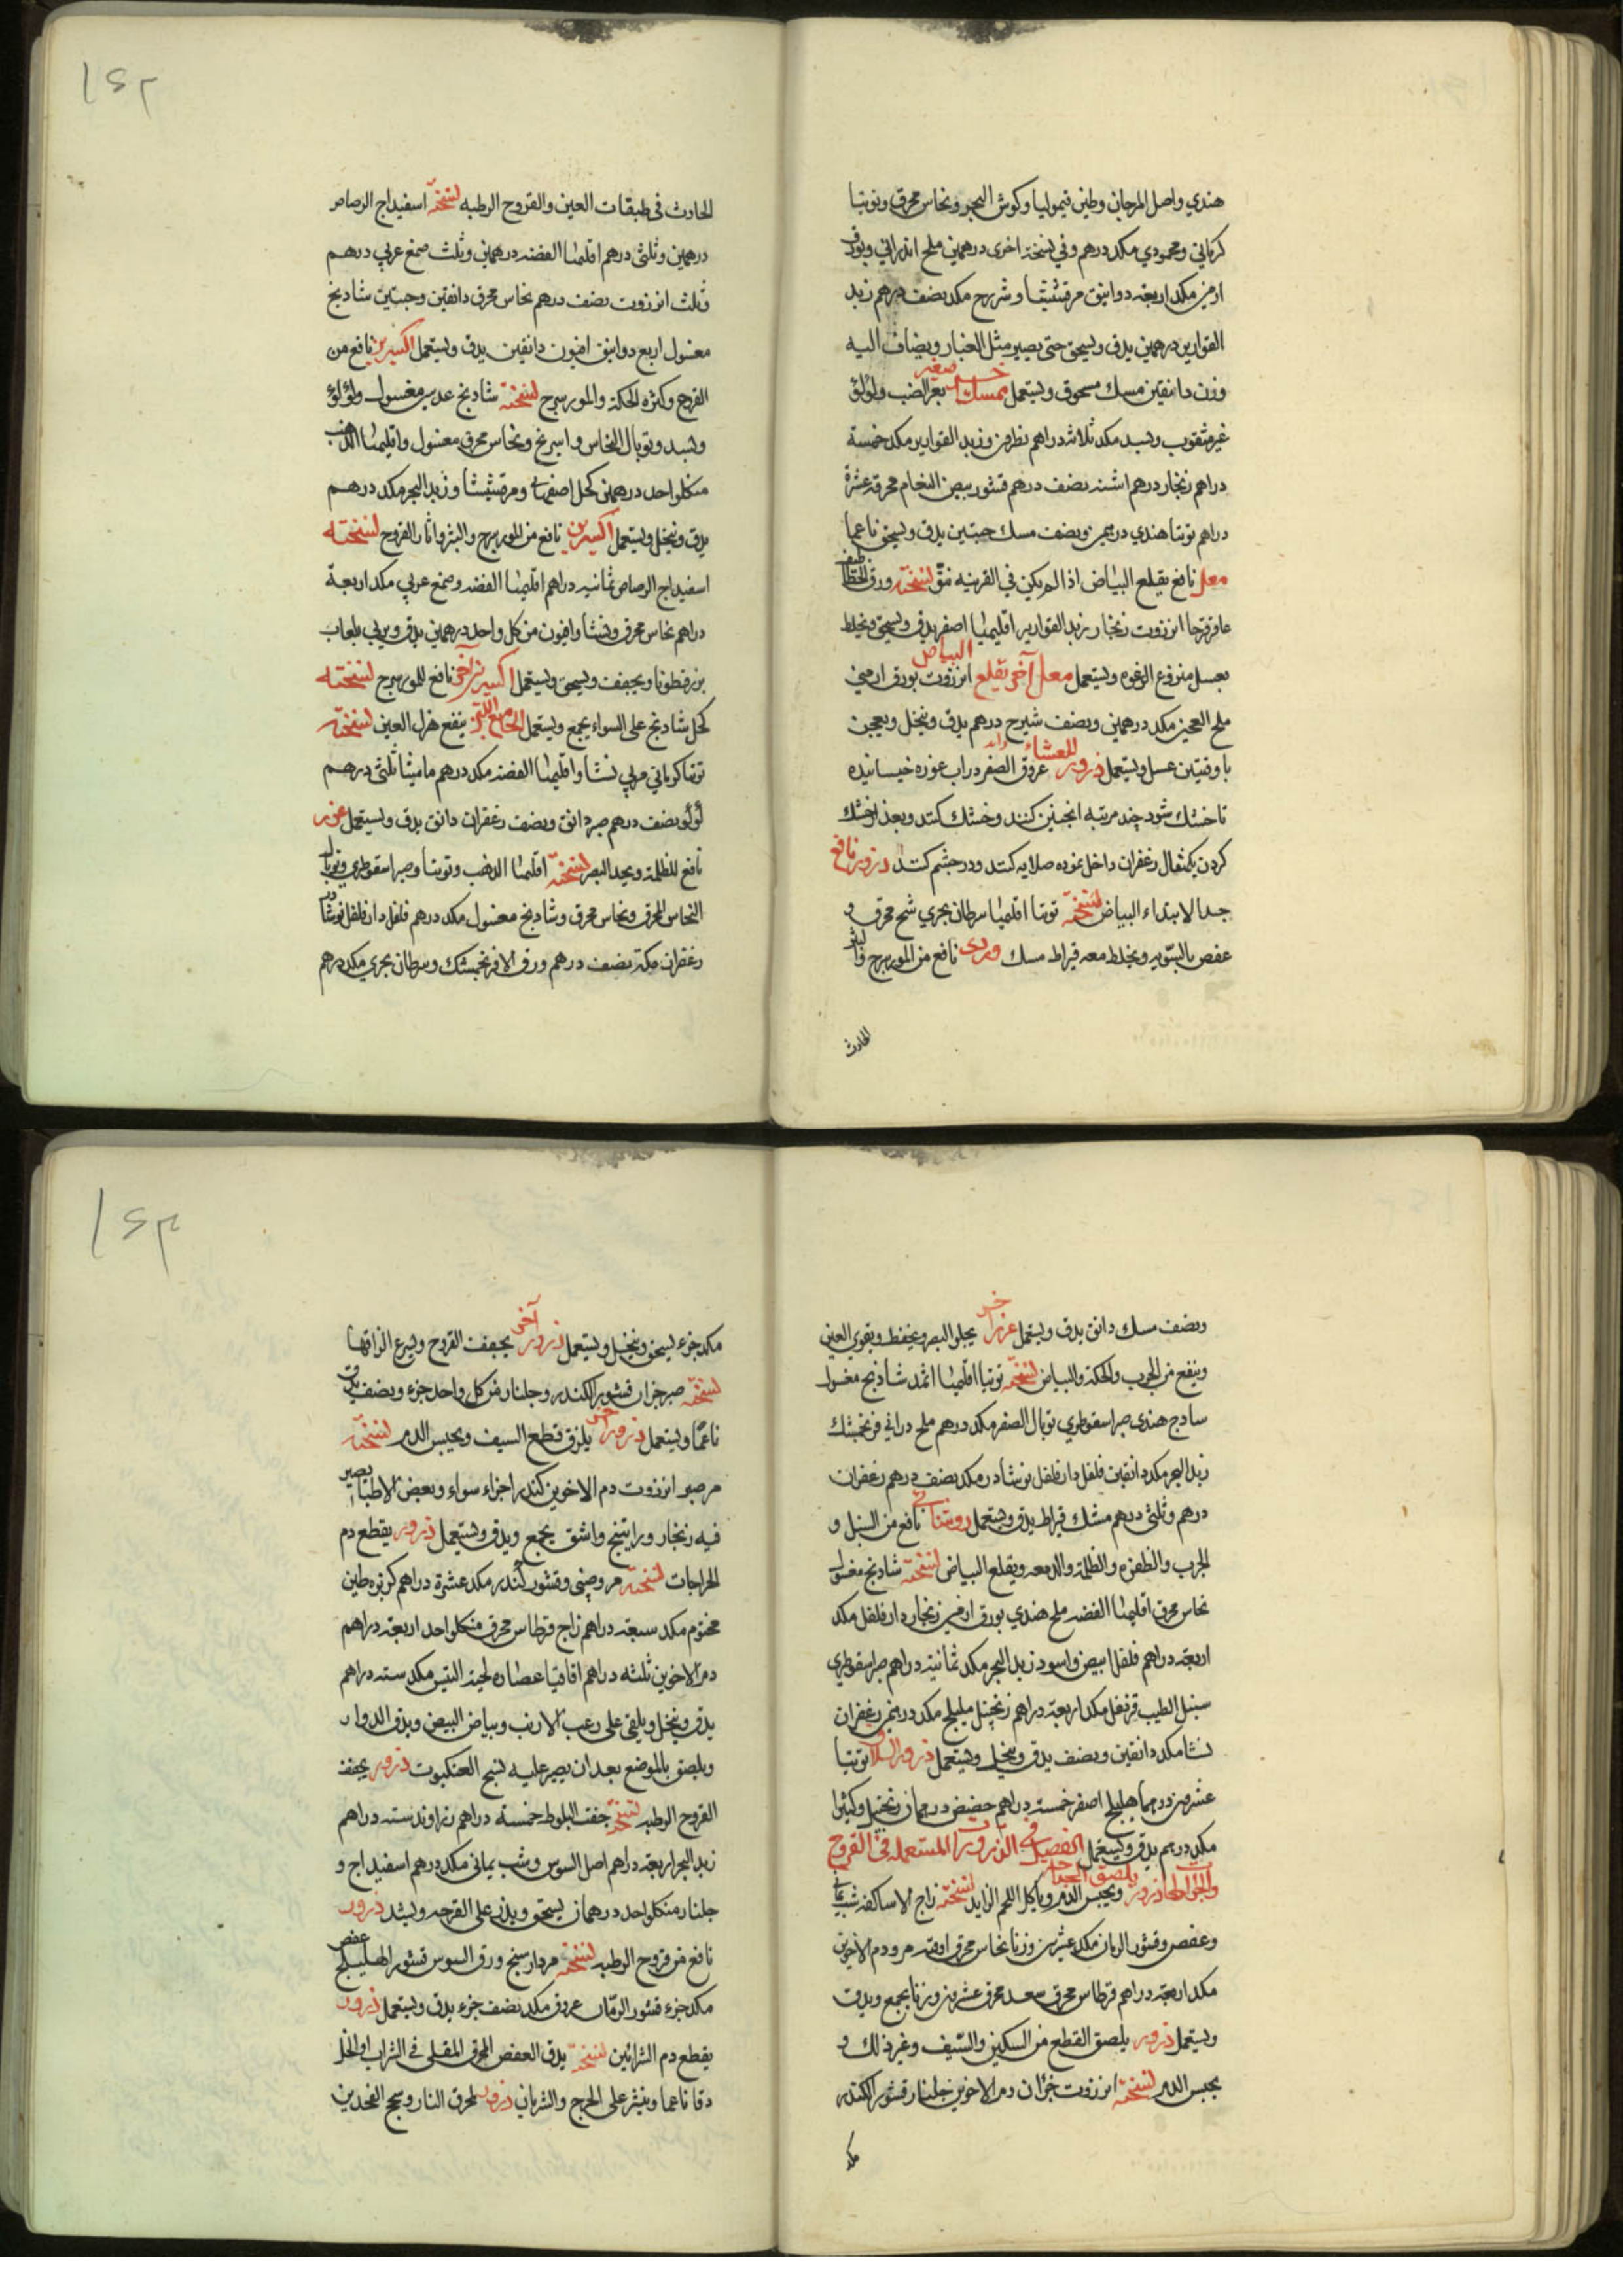 هندي واصل المرجان وطين قيموليا وكوش البحر ونحاس محرق وتوتيا
كرماني ومحمودي مكد درهم وفي نسخة اخرى درهمين ملح اندراني وبورق
ارمني مكد اربعة دوانيق مرقشيثا وشيرج مكد نصف درهم زبد
القوارير درهمين يدق ويسحق حتى يصير مثل الغبار ويضاف اليه
وزن دانقين مسك مسحوق ويستعمل ممسك اخر صغير بعر الضب ولؤلؤ
غير مثقوب وبسد مكد ثلاثة دراهم نطرون وزبد القوارير مكد خمسة
دراهم زنجار درهم اشنه نصف درهم قشور بيض النعام محرقة عشرة
دراهم توتيا هندي درهمين ونصف مسك حبتين يدق ويسحق ناعما
معل نافع يقلع البياض اذا لم يكن في القرنيه نتو نسخته ورق الخطاطيف
عاقرقرحا انزروت زنجار زبد القوارير اقليميا اصفر يدق ويسحق ويخلط
بعسل منزوع الرغوه ويستعمل معل آخر يقلع البياض انزروت بورق ارمني
ملح العجين مكد درهمين ونصف شيرج درهم يدق وينخل ويعجن
باوقيتين عسل ويستعمل ذرور للعشاء عروق الصفر در اب غوره خيسانيده
تا خشك شود چند مرتبه انجنين كنند وخشك كنند وبعد از خشك
كردن يكمثقال زعفران داخل نموده صلايه كنند ودر چشم كنند ذرور نافع
جدا لابتداء البياض نسخته توتيا اقليميا سرطان بحري شح محرق و
عفص بالسويه ويخلط معه قيراط مسك وردى نافع من المورسرج والبثر
الحادث
١٤٢
الحادث في طبقات العين والقروح الرطبه نسخته اسفيداج الرصاص
درهمين وثلثى درهم اقليميا الفضه درهمين وثلث صمغ عربي درهم
وثلث انزروت نصف درهم نحاس محرق دانقين وحبتين شادنج
مغسول اربع دوانيق افيون دانقين يدق ويستعمل اكسيرين نافع من
القروح وكثرة الحكة والمورسرج نسخته شادنج عدسي مغسول ولؤلؤ
وبسد وتوبال النحاس واسرنج ونحاس محرق مغسول واقليميا الذهب
من كل واحد درهمين كحل اصفهاني ومرقشيشا وزبد البحر مكد درهم
يدق وينخل ويستعمل اكسيرين نافع من المورسرج والبثر واثار القروح نسخته
اسفيداج الرصاص ثمانيه دراهم اقليميا الفضه وصمغ عربي مكد اربعة
دراهم نحاس محرق ونشا وافيون من كل واحد درهمين يدق ويربي بلعاب
بزرقطونا ويجفف ويسحق ويستعمل اكسيرين آخر نافع للمورسرج نسخته
كحل شادنج على السواء يجمع ويستعمل ينفع هزل العين نسخته
توتيا كرماني مربي نشا واقليميا الفضه مكد درهم ماميثا ثلثى درهم
لؤلؤ نصف درهم صبر دانق ونصف زعفران دانق يدق ويستعمل عزيز
نافع للظلمة ويحد البصر نسخته اقليميا الذهب وتوتيا وصبر اسقوطري وتوبال
النحاس المحرق ونحاس محرق وشادنج مغسول مكد درهم فلفل دار فلفل نوشادر
زعفران مكد نصف درهم ورق الافرنجمشك وسرطان بحري مكد درهم
ونصف مسك دانق يدق ويستعمل عزيز اخر يجلو البصر ويحفظه ويقوي العين
وينفع من الجرب والحكة والبياض نسخته توتيا اقليميا اثمد شادنج مغسول
سادج هندي صبر اسقوطري توبال الصفر مكد درهم ملح دراني فرنجمشك
زبد البحر مكد دانقين فلفل دار فلفل نوشادر مكد نصف درهم زعفران
درهم وثلثى درهم مشك قيراط يدق ويستعمل روشنائي نافع من السبل و
الجرب والظفره والظلمة والدمعه ويقلع البياض نسخته شادنج مغسول
نحاس محرق اقليميا الفضه ملح هندي بورق ارمني زنجار دار فلفل مكد
اربعة دراهم فلفل ابيض واسود زبد البحر مكد ثمانية دراهم صبر اسقوطري
سنبل الطيب قرنفل مكد اربعة دراهم زنجبيل هليلج مكد درهمين زعفران
نشا مكد دانقين ونصف يدق وينخل ويستعمل ذرور السلاق توتيا
عشرين درهما هليلج اصفر خمسة دراهم حضيض درهمان زنجبيل وكثيرا
مكد درهم يدق ويستعمل الفصل في الذرورات المستعمله في القروح
والجراحات ذرور يلصق الجراحات ويحبس الدم وياكل اللحم الزايد نسخته زاج الاساكفه شب يماني
وعفص وقشور الرمان مكد عشرين وزنا نحاس محرق اوقيه مر ودم الاخوين
مكد اربعة دراهم قرطاس محرق سعد محرق عشرين وزنا يجمع ويدق
ويستعمل ذرور يلصق القطع من السكين والسيف وغير ذلك و
يحبس الدم نسخته انزروت جزان دم الاخوين جلنار قشور الكندر
مكد
١٤٣
مكد جزء يسحق وينخل ويستعمل ذرور آخر يجفف القروح ويسرع الزاقها
نسخته صبر جزان قشور الكندر وجلنار من كل واحد جزء ونصف يدق
ناعما ويستعمل ذرور اخر يلزق قطع السيف ويحبس الدم نسخته
مر صبر انزروت دم الاخوين كندر اجزاء سواء وبعض الاطباء يصير
فيه زنجار وراتينج واشق يجمع ويدق ويستعمل ذرور يقطع دم
الجراحات نسخته مر وصبر وقشور كندر مكد عشرة دراهم كزبره طين
مختوم مكد سبعة دراهم زاج قرطاس محرق من كل واحد اربعة دراهم
دم الاخوين ثلثه دراهم اقاقيا عصاره لحية التيس مكد سته دراهم
يدق وينخل ويلقى على زغب الارنب وبياض البيض ويدق الدوار
ويلصق بالموضع بعد ان يصير عليه نسج العنكبوت ذرور يجفف
القروح الرطبه نسخته جفت البلوط خمسة دراهم زراوند سته دراهم
زبد البحر اربعة دراهم اصل السوس وشب يماني مكد درهم اسفيداج و
جلنار من كل واحد درهمان يسحق ويذر على القرحه ويشد ذرور
نافع من قروح الرطبه نسخته مردارسنج ورق السوس قشور الهليلج عفص
مكد جزء قشور الرمان عروق مكد نصف جزء يدق ويستعمل ذرور
يقطع دم الشرائين نسخته يدق العفص المحرق المقلى في الشراب او الخل
دقا ناعما وينثر على الجرح والشريان ذرور لحرق النار وسحج الفخذين